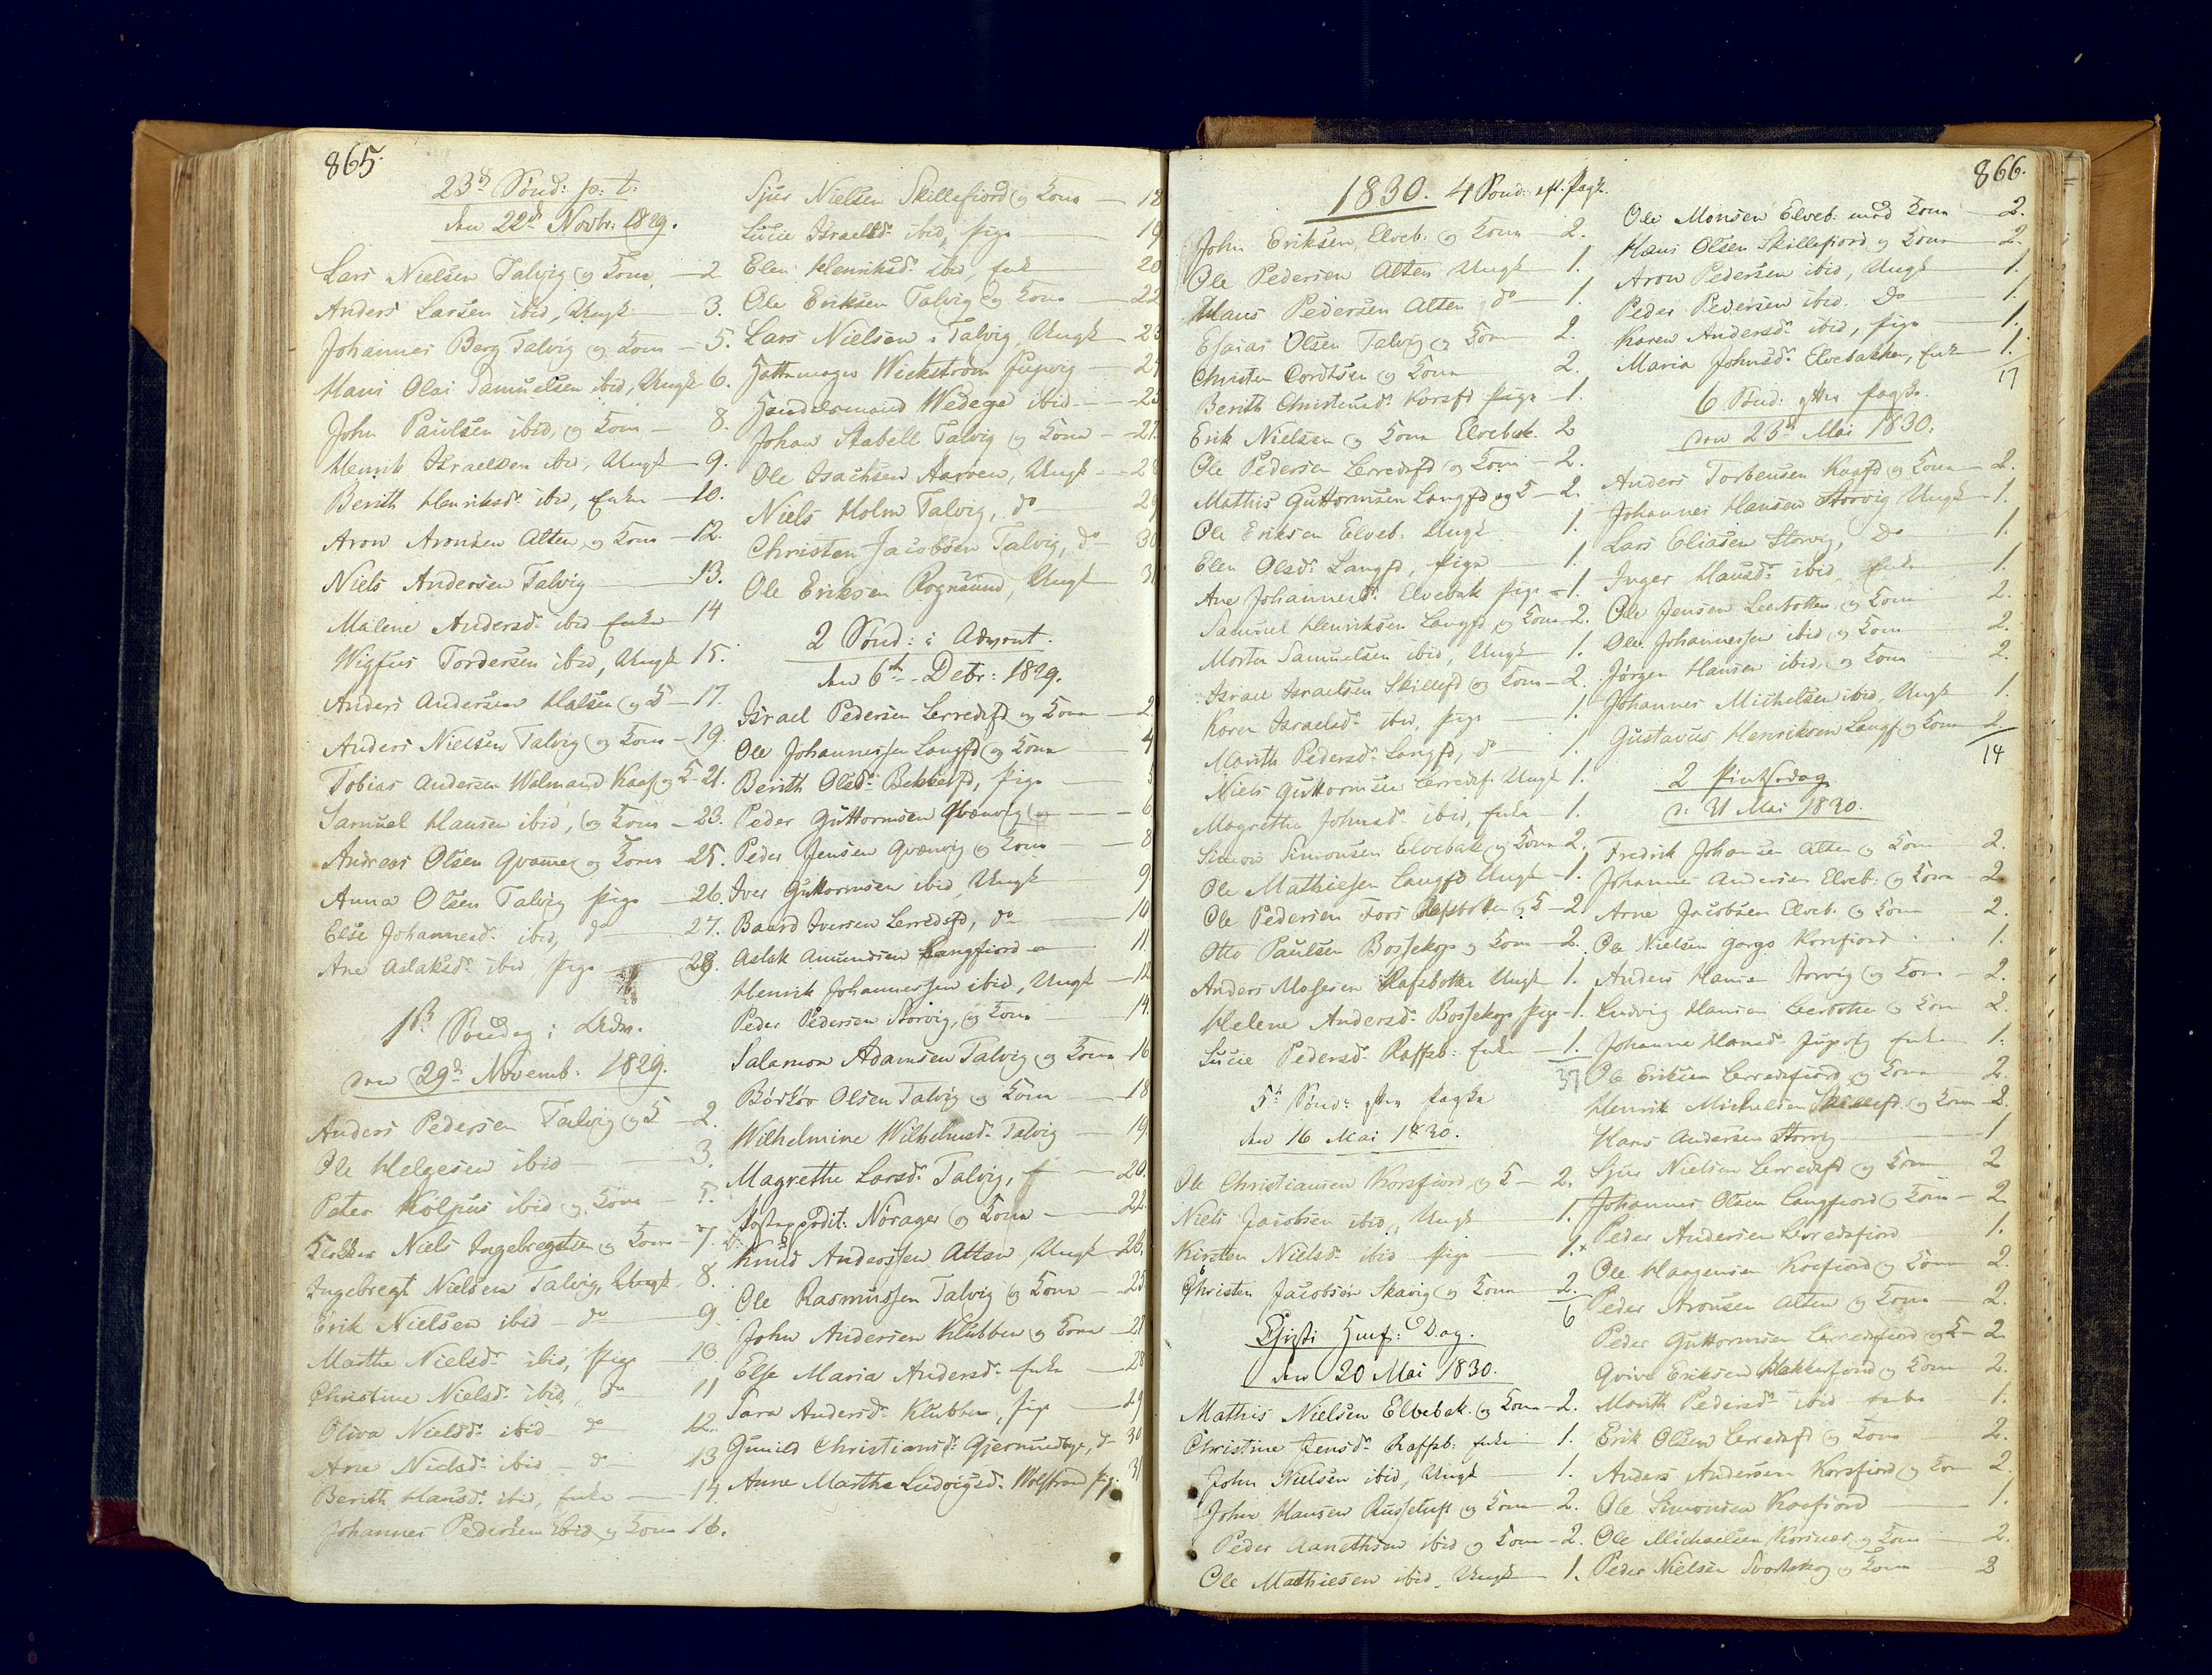 865.
23d Sønd: p: t:
den 22d Novbr: 1829.
Lars Nielsen Talvig og Kone — 2
Anders Larsen ibid, Ungk — 3.
Johannes Berg Talvig og Kone — 5.
Hans Olai Samuelsen ibid, Ungk 6.
John Paulsen ibid, og Kone — 8.
Henrik Israelsen ibid, Ungk — 9.
Berith Henriksdr ibid, Enke — 10.
Aron Aronsen Alten, og Kone — 12.
Niels Andersen Talvig — 13.
Malene Andersdr ibid Enke — 14
Wigfus Tordersen ibid, Ungk 15.
Anders Andersen Halsen og K — 17.
Anders Nielsen Talvig og Kone — 19.
Tobias Andersen Wolmand Kaaf og K — 21.
Samuel Hansen ibid, og Kone — 23.
Andreas Olsen Qvænvig og Kone — 25.
Anna Olsen Talvig Pige — 26.
Else Johannesdr ibid, do — 27.
Ane Aslaksdr ibid, Pige — 28.
1ste Søndag i Adv.
den 29d Novemb: 1829.
Anders Pedersen Talvig og K — 2.
Ole Helgesen ibid — 3.
Peter Kölpus ibid og Kone — 5.
Klokker Niels Ingebregtsen og Kone — 7.
Ingebregt Nielsen Talvig, Ungk. 8.
Erik Nielsen ibid — do — 9.
Marthe Nielsdr ibid, Pige — 10.
Christine Nielsdr ibid, do 11
Oliva Nielsdr ibid — do 12.
Ane Nielsdr ibid — do 13
Berith Hansdr ibid, Enke — 14.
Johannes Pedersen ibid og Kone 16.
Sjur Nielsen Skillefiord og Kone — 18
Lucie Israelsdr ibid, Pige — 19
Elen Henriksdr ibid, Enke 20
Ole Eriksen Talvig og Kone — 22
Lars Nielsen i Talvig, Ungk — 23
Wickström Jupvig — 24
Handelsmand Wedege ibid — 25
Johan Stabell Talvig og Kone — 27.
Ole Isachsen Aaroen, Ungk — 28
Niels Holm Talvig, do — 29
Christen Jacobsen Talvig, do — 30
Ole Eriksen Rognsund, Ungk — 31
2 Sønd: i Advent.
den 6te Debr: 1829.
Israel Pedersen Lerredsfd og Kone — 2
Ole Johannessen Langfd og Kone — 4
Berith Olsdr Bekkerfd, Pige — 5
Peder Guttormsen Qvænvig — 6
Peder Jensen Qvænvig og Kone — 8
Iver Guttormsen ibid, Ungk 9
Baard Iversen Lerredsfd, do — 10
Aslak Amundsen Langfiord — 11.
Henrik Johannessen ibid, Ungk — 12
Peder Pedersen Storvig, og Kone — 14.
Salamon Adamsen Talvig og Kone — 16
Olsen Talvig og Kone — 18
Wilhelmine Wilhelmsdr Talvig — 19
Magrethe Larsdr Talvig, — 20.
Nørager og Kone — 22.
Knud Anderssen Alten, Ungk — 23.
Ole Rasmussen Talvig og Kone — 25
John Andersen Klubben og Kone — 27
Else Maria Andersdr Enke — 28
Sara Andersdr Klubben, Pige — 29
Gunild Christiansdr do — 30
Anne Martha Ludvigsdr Pig. 31
866.
1830. 4 Sønd: eft. Paask.
John Eriksen, Elveb. og Kone — 2.
Ole Pedersen Alten Ungk — 1.
Hans Pedersen Alten do — 1.
Esaias Olsen Talvig og Kone 2.
Christen Cordtsen og Kone 2.
Berith Christensdr Korsfd Pige — 1.
Erik Nielsen og Kone Elvebak. 2
Ole Pedersen Lerredsfd og Kone — 2.
Mathis Guttormsen Langfd og K — 2.
Ole Eriksen Elveb. Ungk 1.
Elen Olsdr Langfd, Pige — 1.
Ane Johannesdr Elvebak Pige — 1.
Samuel Henriksen Langfd og Kone — 2.
Morten Samuelsen ibid, Ungk — 1.
Israel Israelsen Skillefd og Kone — 2.
Karen Israelsdr ibid, Pige — 1.
Marith Pedersdr Langfd, do — 1.
Niels Guttormsen Lerredsf. Ungk 1.
Magrethe Johnsdr ibid, Enke — 1.
Simon Simonsen Elvebak og Kone 2.
Ole Mathiesen Langfd Ungk — 1.
Ole Pedersen Fors Rafsbotten og K — 2
Otto Paulsen Bossekop og Kone — 2.
Anders Mosesen Rafsbotten Ungk 1.
Helene Andersdr Bossekop Pige — 1.
Lucie Pedersdr Raffsb: Enke — 1.
37
5te Sønd: efter Paaske
den 16 Mai 1830.
Ole Christiansen Korsfiord, og K — 2.
Niels Jacobsen ibid, Ungk 1.
Kirsten Nielsdr ibid Pige — 1.
Christen Jacobsen Skavig og Kone — 2.
6
Christi Himf: Dag.
den 20 Mai 1830.
Mathis Nielsen Elvebak. og Kone — 2.
Christine Jensdr Raffsb: Enke 1.
John Nielsen ibid, Ungk 1.
John Hansen Russeluft og Kone — 2.
Peder Aanethsen ibid og Kone — 2.
Ole Mathiesen ibid. Ungk — 1.
Ole Monsen Elveb. med Kone — 2.
Hans Olsen Skillefiord og Kone — 2.
Aron Pedersen ibid, Ungk 1.
Peder Pedersen ibid. do — 1.
Karen Andersdr ibid, Pige — 1.
Maria Johnsdr Elvebakken, Enke — 1.
17
6 Sønd: efter Paaske.
den 23d Mai 1830.
Anders Torbensen Kaafd og Kone — 2.
Johannes Hansen Storvig Ungk — 1.
Lars Eliasen Storvig, do 1.
Inger Hansdr ibid, Enke 1.
Ole Jensen Leerbotten og Kone 2.
Ole Johannessen ibid og Kone 2.
Jørgen Hansen ibid, og Kone 2.
Johannes Michelsen ibid, Ungk 1.
Gustavus Henriksen Langf og Kone 2.
14
2 Pintsedag
d: 31 Mai 1830.
Fredrik Johansen Alten og Kone 2.
Johannes Andersen Elveb. og Kone — 2
Arne Jacobsen Elveb. og Kone 2.
Ole Nielsen Korsfiord 1.
Anders Hansen Storvig og Kone — 2.
Ludvig Hansen Leerbotten og Kone 2.
Johanne Hansdr Jupvig Enke 1.
Ole Eriksen Lerredsfiord og Kone 2.
Henrik Michelsen Skillefd og Kone 2.
Hans Andersen Storvig — 1
Sjur Nielsen Lerredsfd og Kone 2
Johannes Olsen Langfiord og Kone — 2
Peder Andersen Lerredsfiord 1.
Ole Haagensen Kaafiord og Kone 2.
Peder Aronsen Alten og Kone 2.
Peder Guttormsen Lerredsfiord og K — 2
Qvive Eriksen Bekkerfiord og Kone 2.
Marith Pedersdr ibid Enke 1.
Erik Olsen Lerredsfd og Kone 2.
Anders Andersen Korsfiord og Kone 2.
Ole Simonsen Kaafiord 1.
Ole Michaelsen Korsnæs og Kone 2.
Peder Nielsen Svartskog og Kone 2